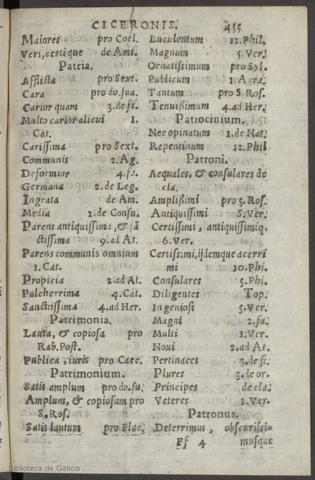 CICERONIS. 455
Maiores pro Coel.
Veri, certique de Ami.
Patria.
Afflicta pro Sext.
Cara pro do.sua.
Carior quam 3.de fi.
Multo carior alicui 1.
Cat.
Carissima pro Sext.
Communis 2.Ag.
Deformior 4.fa.
Germana 2.de Leg.
Ingrata de Am.
Media 2.de Consu.
Parens antiquissima, & sā
ctissima 9.ad At.
Parens communis omnium
1.Cat.
Propicia 2.ad At.
Pulcherrima 4.Cat.
Sanctissima 4.ad Her.
Patrimonia.
Lauta, & copiosa pro
Rab.Post.
Publica, iuris pro Caec.
Patrimonium.
Satis amplum pro do.su.
Amplum, & copiosum pro
S.Ros.
Satis lautum pro Flac.
Luculentum 12.Phil.
Magnum 5.Ver.
Ornatissimum pro Syl.
Publicum 1.Agra.
Tantum pro S.Ros.
Tenuissimum 4.ad Her.
Patrocinium.
Necopinatum 1.de Nat.
Repentinum 12.Phil
Patroni.
Aequales, & consulares de
cla.
Amplissimi pro S.Ros.
Antiquissimi S.Ver.
Certissimi, antiquissimiq.
6.Ver.
Certissimi, ijdemque acerri
mi 10.Phi.
Consulares 5.Phi.
Diligentes Top.
Ingeniosi 5.Ver.
Magni 2.fa.
Multi 1.Ver.
Noui 2.ad At.
Pertinaces 3.de fi.
Plures 3.de or.
Principes de cla.
Veteres 1.Ver.
Patronus.
Deterrimus, obscurissi-
Ff 4 musque
Biblioteca de Galicia